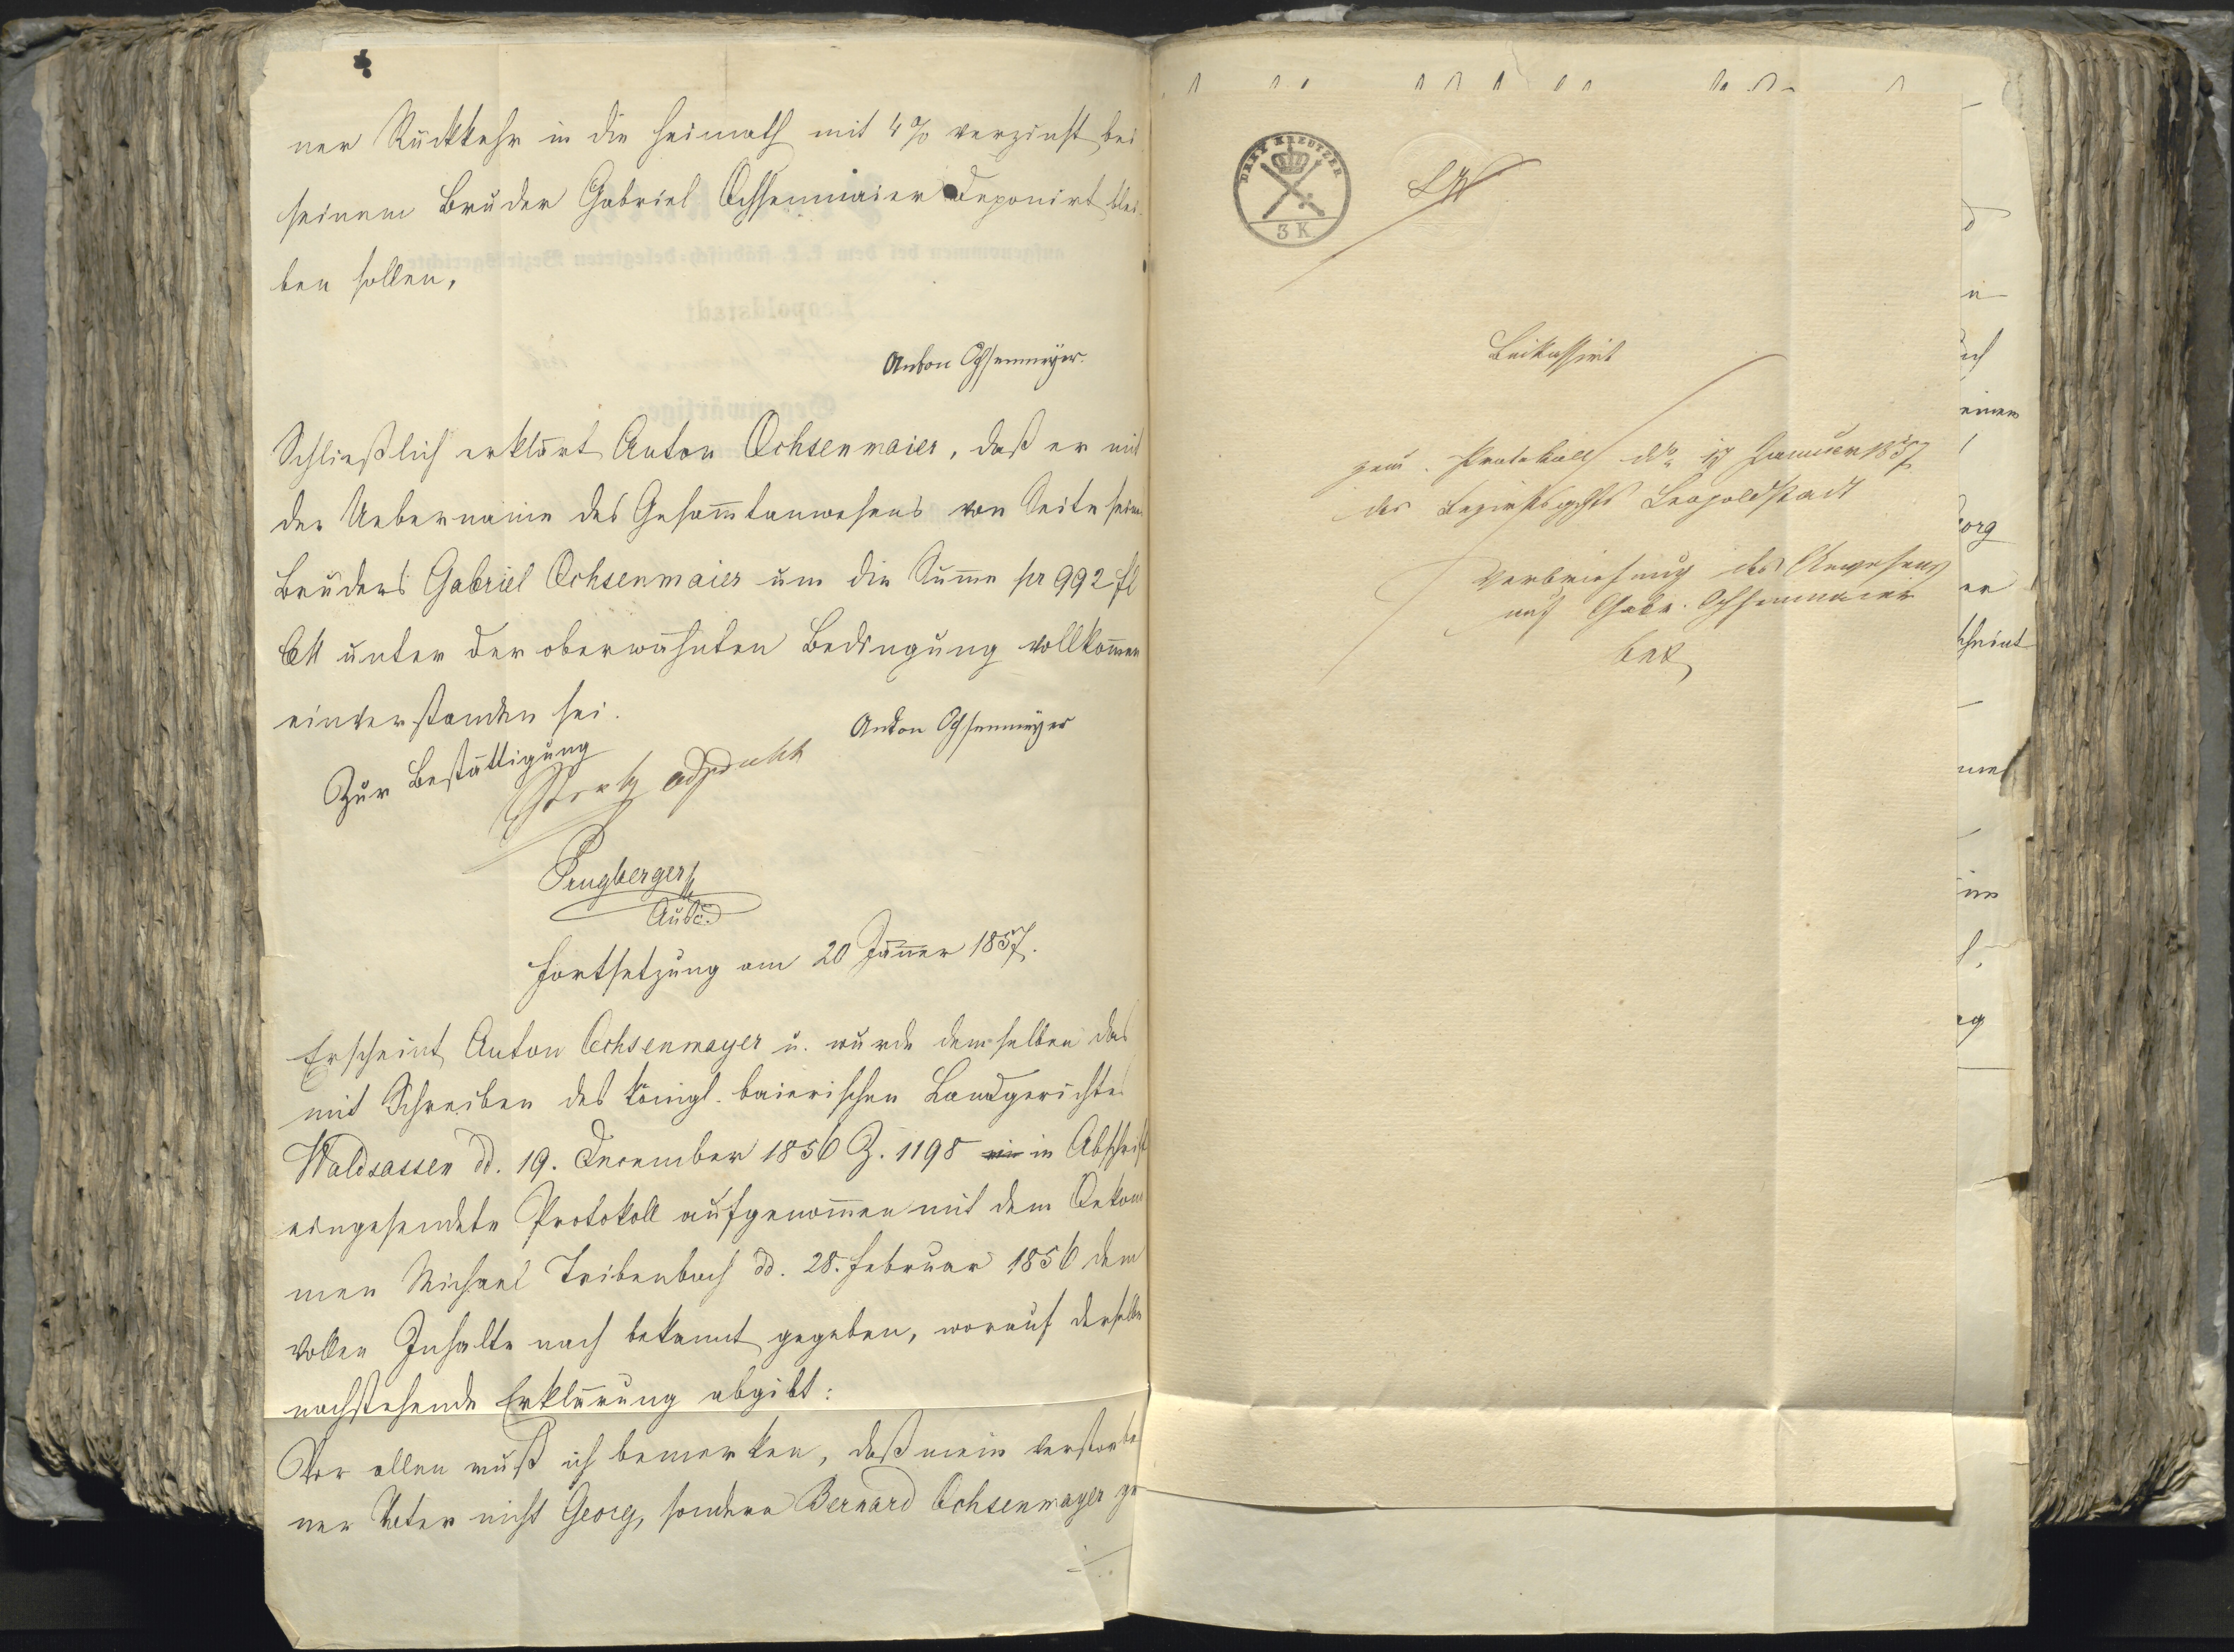 ner Rückkehr in die Heimath mit 4% verzinst bei
seinem Bruder Gabriel Ochsenmaier deponirt blei-
ben sollen.
Anton Ochsenmeyer.
Schließlich erklärt Anton Ochsenmaier, daß er mit
der Uebername des Gesam̄tanwesens von Seite seines
Bruders Gabriel Ochsenmaier um die Sum̄e pr 992 fl
CM unter der oberwähnten Bedingung vollkom̄en
einverstanden sei.
Anton Ochsenmeyer
Zur Bestättigung
Prugberger
Fortsetzung am 20 Jänner 1857.
Erscheint Anton Ochsenmayer u. wurde demselben das
mit Schreiben des königl. baierischen Landgerichtes
Waldsassen dd. 19. Dezember 1856 Z. 1198 in Abschrift
eingesendete Protokoll aufgenom̄en mit dem Oekono
men Michael Tribenbach dd. 28. Februar 1856 dem
vollen Inhalte nach bekannt gegeben, worauf derselbe
nachstehende Erklärung abgibt:
Vor allen muß ich bemerken, daß mein verstorbe
ner Vater nicht Georg, sondern Bernard Ochsenmayer ge
DREY KREUTZER
3 K
Protokoll Januar 1857
des Bezirksgchts Leopoldstadt
Verbriefung des Anwesens
auf Gabr. Ochsenmaier
betr